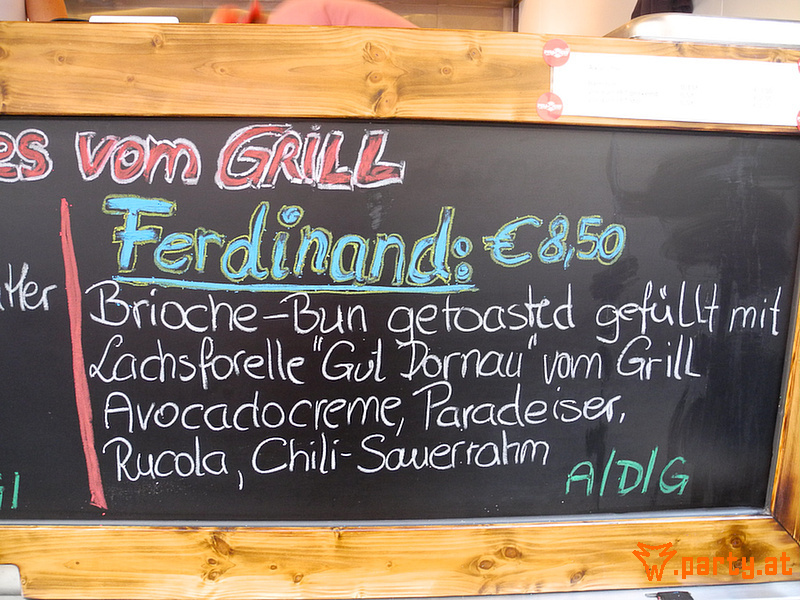 es vom GRILL
Ferdinand: €8,50
Brioche-Bun getoasted gefüllt mit
Lachsforelle "Gut Dornau" vom Grill
Avocadocreme, Paradeiser,
Rucola, Chili-Sauerrahm
A/D/G
.party.at